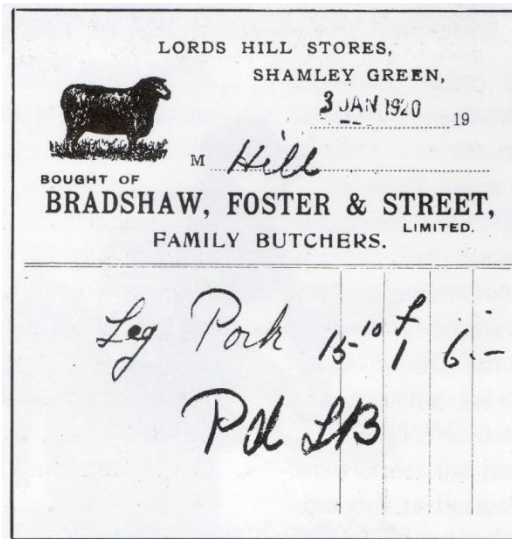 LORDS HILL STORES,
SHAMLEY GREEN,
3 JAN 1920 19
M Hill
BOUGHT OF
BRADSHAW, FOSTER & STREET,
LIMITED.
FAMILY BUTCHERS.
Leg Pork 15 10 1 6 -
Pd LB